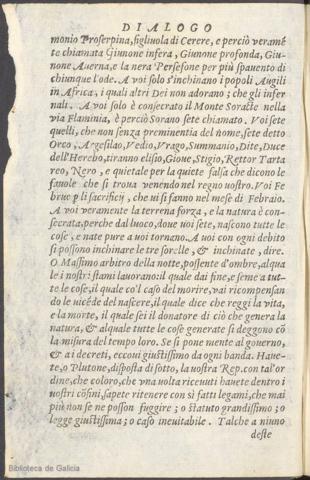 DIALOGO
monio Proserpina, figliuola di Cerere, e perciò veramẽ
te chiamata Giunone infera, Giunone profonda, Giu-
none Auerna, e la nera Persefone per più spauento di
chiunque l'ode. A voi solo s'inchinano i popoli Augili
in Africa, i quali altri Dei non adorano; che gli infer
nali. A voi solo è consecrato il Monte Soratte nella
via Flaminia, è perciò Sorano sete chiamato. Voi sete
quelli, che non senza preminentia del nome, sete detto
Orco, Argesilao, Vedio, Vrago, Summanio, Dite, Duce
dell'Herebo, tiranno elisio, Gioue, Stigio, Rettor Tarta
reo, Nero, e quietale per la quiete falsa che dicono le
fauole che si troua venendo nel regno uostro. Voi Fe
bruc p li sacrificij, che ui si fanno nel mese di Febraio.
A voi veramente la terrena forza, e la natura è con-
secrata, perche dal luoco, doue uoi sete, nascono tutte le
cose, e nate pure a uoi tornano. A uoi con ogni debito
si possono inchinare le tre sorelle, & inchinate, dire.
O Massimo arbitro della notte, possente d'ombre, al qua
le i nostri stami lauorano: il quale dai fine, e seme a tut-
te le cose, il quale co'l caso del morire, vai ricompensan
do le uicẽde del nascere, il quale dice che reggi la vita,
e la morte, il quale sei il donatore di ciò che genera la
natura, & al quale tutte le cose generate si deggono cõ
la misura del tempo loro. Se si pone mente al gouerno,
& ai decreti, eccoui giustissimo da ogni banda. Haue-
te, o Plutone, disposta di sotto, la uostra Rep. con tal'or
dine, che coloro, che vna uolta riceuuti hauete dentro i
vostri cõfini, sapete ritenere con sì fatti legami, che mai
più non se ne posson fuggire; o statuto grandissimo; o
legge giustissima; o caso ineuitabile. Talche a niuno
deste
Biblioteca de Galicia